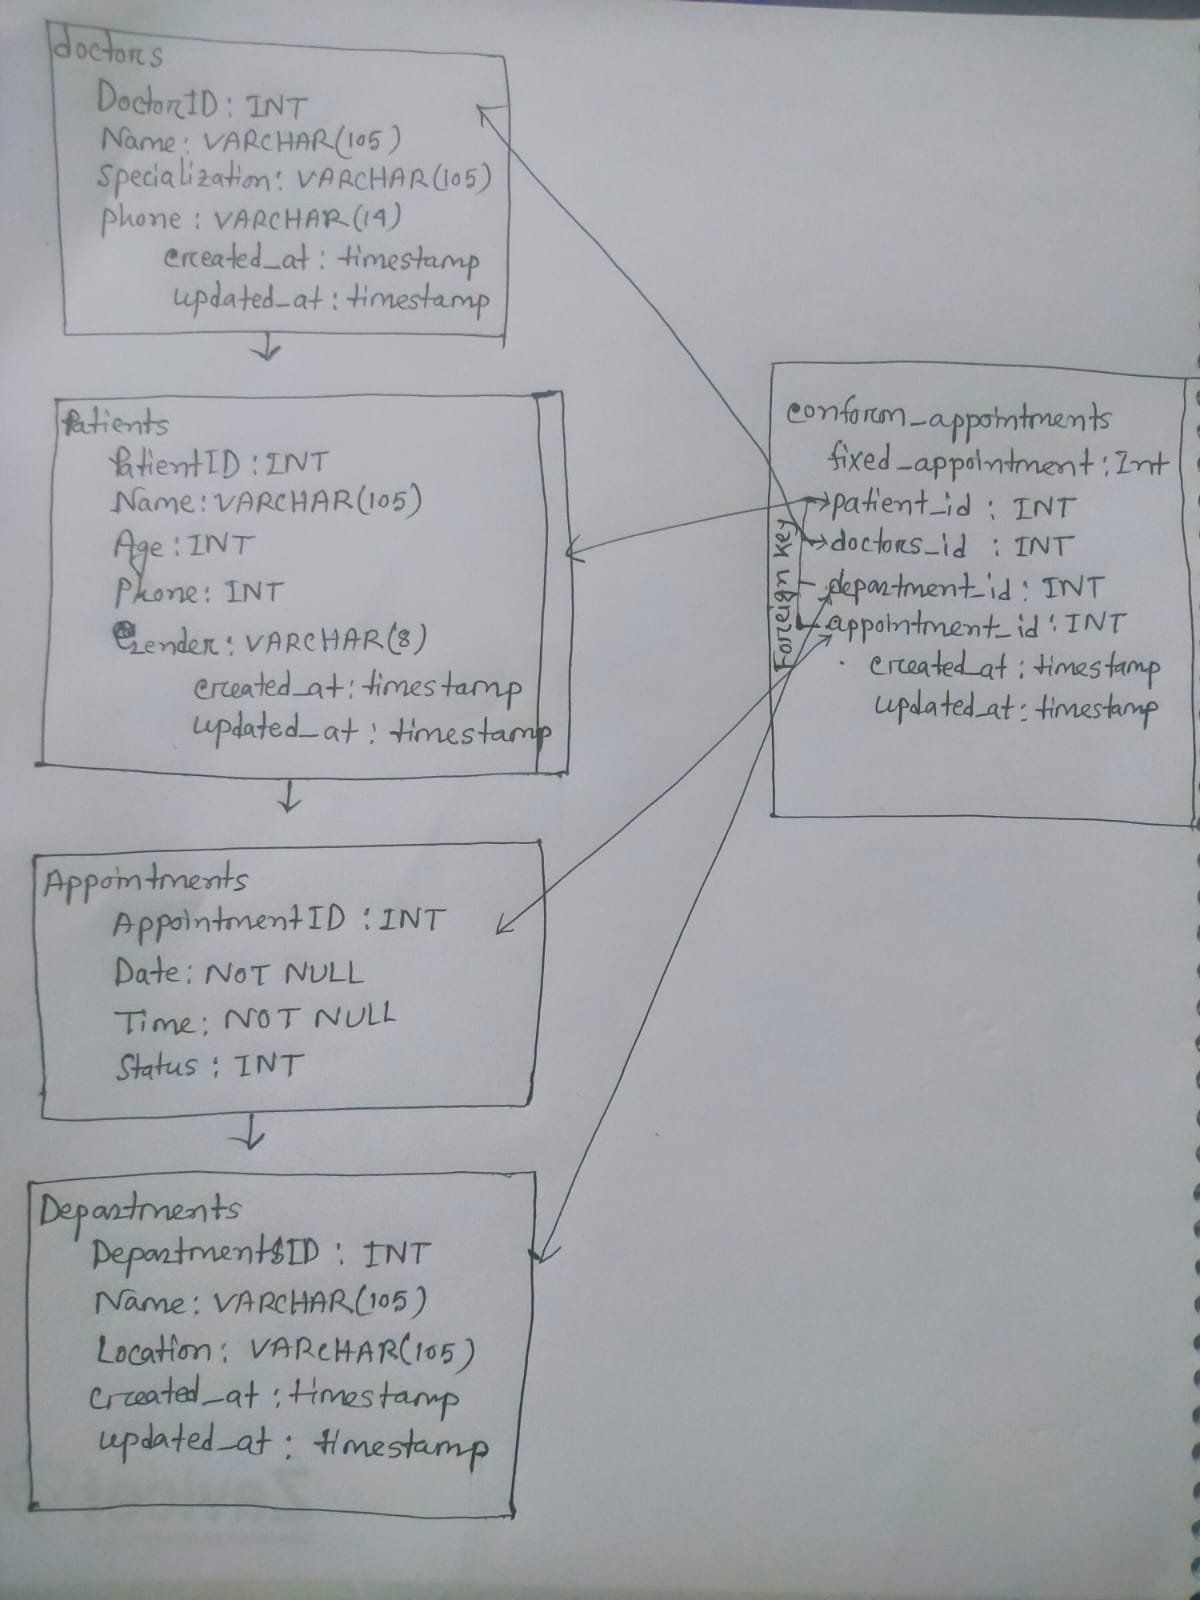 doctors
DoctorID: INT
Name: VARCHAR(105)
Specialization: VARCHAR(105)
phone: VARCHAR(14)
created_at: timestamp
updated_at: timestamp
Patients
PatientID: INT
Name: VARCHAR(105)
Age: INT
Phone: INT
Gender: VARCHAR(8)
created_at: timestamp
updated_at: timestamp
Appointments
AppointmentID: INT
Date: NOT NULL
Time: NOT NULL
Status: INT
Departments
DepartmentsID: INT
Name: VARCHAR(105)
Location: VARCHAR(105)
created_at: timestamp
updated_at: timestamp
conform_appointments
fixed_appointment: Int
patient_id: INT
doctors_id: INT
department_id: INT
appointment_id: INT
created_at: timestamp
updated_at: timestamp
Foreign Key